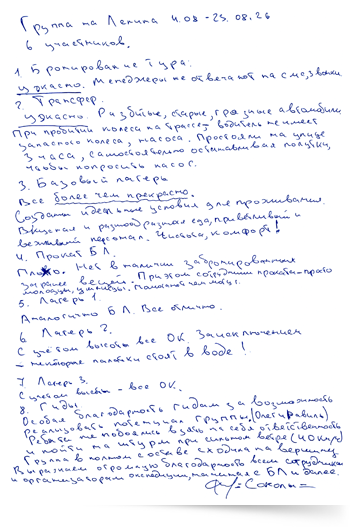 Группа на Ленина 4.08 - 23.08.26
6 участников.
1. Бронирование тура.
Ужасно. Менеджеры не отвечают на смс, звонки
2. Трансфер.
Ужасно. Разбитые, старые, грязные автомобили
При пробитии колеса на трассе водитель не имеет
запасного колеса, насоса. Простояли на улице
3 часа, самостоятельно останавливая попутки,
чтобы попросить насос.
3. Базовый лагерь
Все более чем прекрасно.
Созданы идеальные условия для проживания.
Вкусная и разнообразная еда, приветливый и
вежливый персонал. Чистота, комфорт!
4. Прокат БЛ.
Плохо. Нет в наличии забронированных
заранее вещей. При этом сотрудники проката - просто
молодцы, умницы. Помогают чем могут.
5. Лагерь 1.
Аналогично БЛ. Все отлично.
6. Лагерь 2.
С учетом высоты все ОК. За исключением
- некоторые палатки стоят в воде!
7. Лагерь 3.
С учетом высоты - все ОК.
8. Гиды.
Особая благодарность гидам за возможность
реализовать потенциал группы, (Олег и Равиль)
Ребята не побоялись взять на себя ответственность
и пойти на штурм при сильном ветре (40 км/ч)
Группа в полном составе сходила на вершину
Выражаем огромную благодарность всем сотрудникам
и организаторам экспедиции, начиная с БЛ и далее.